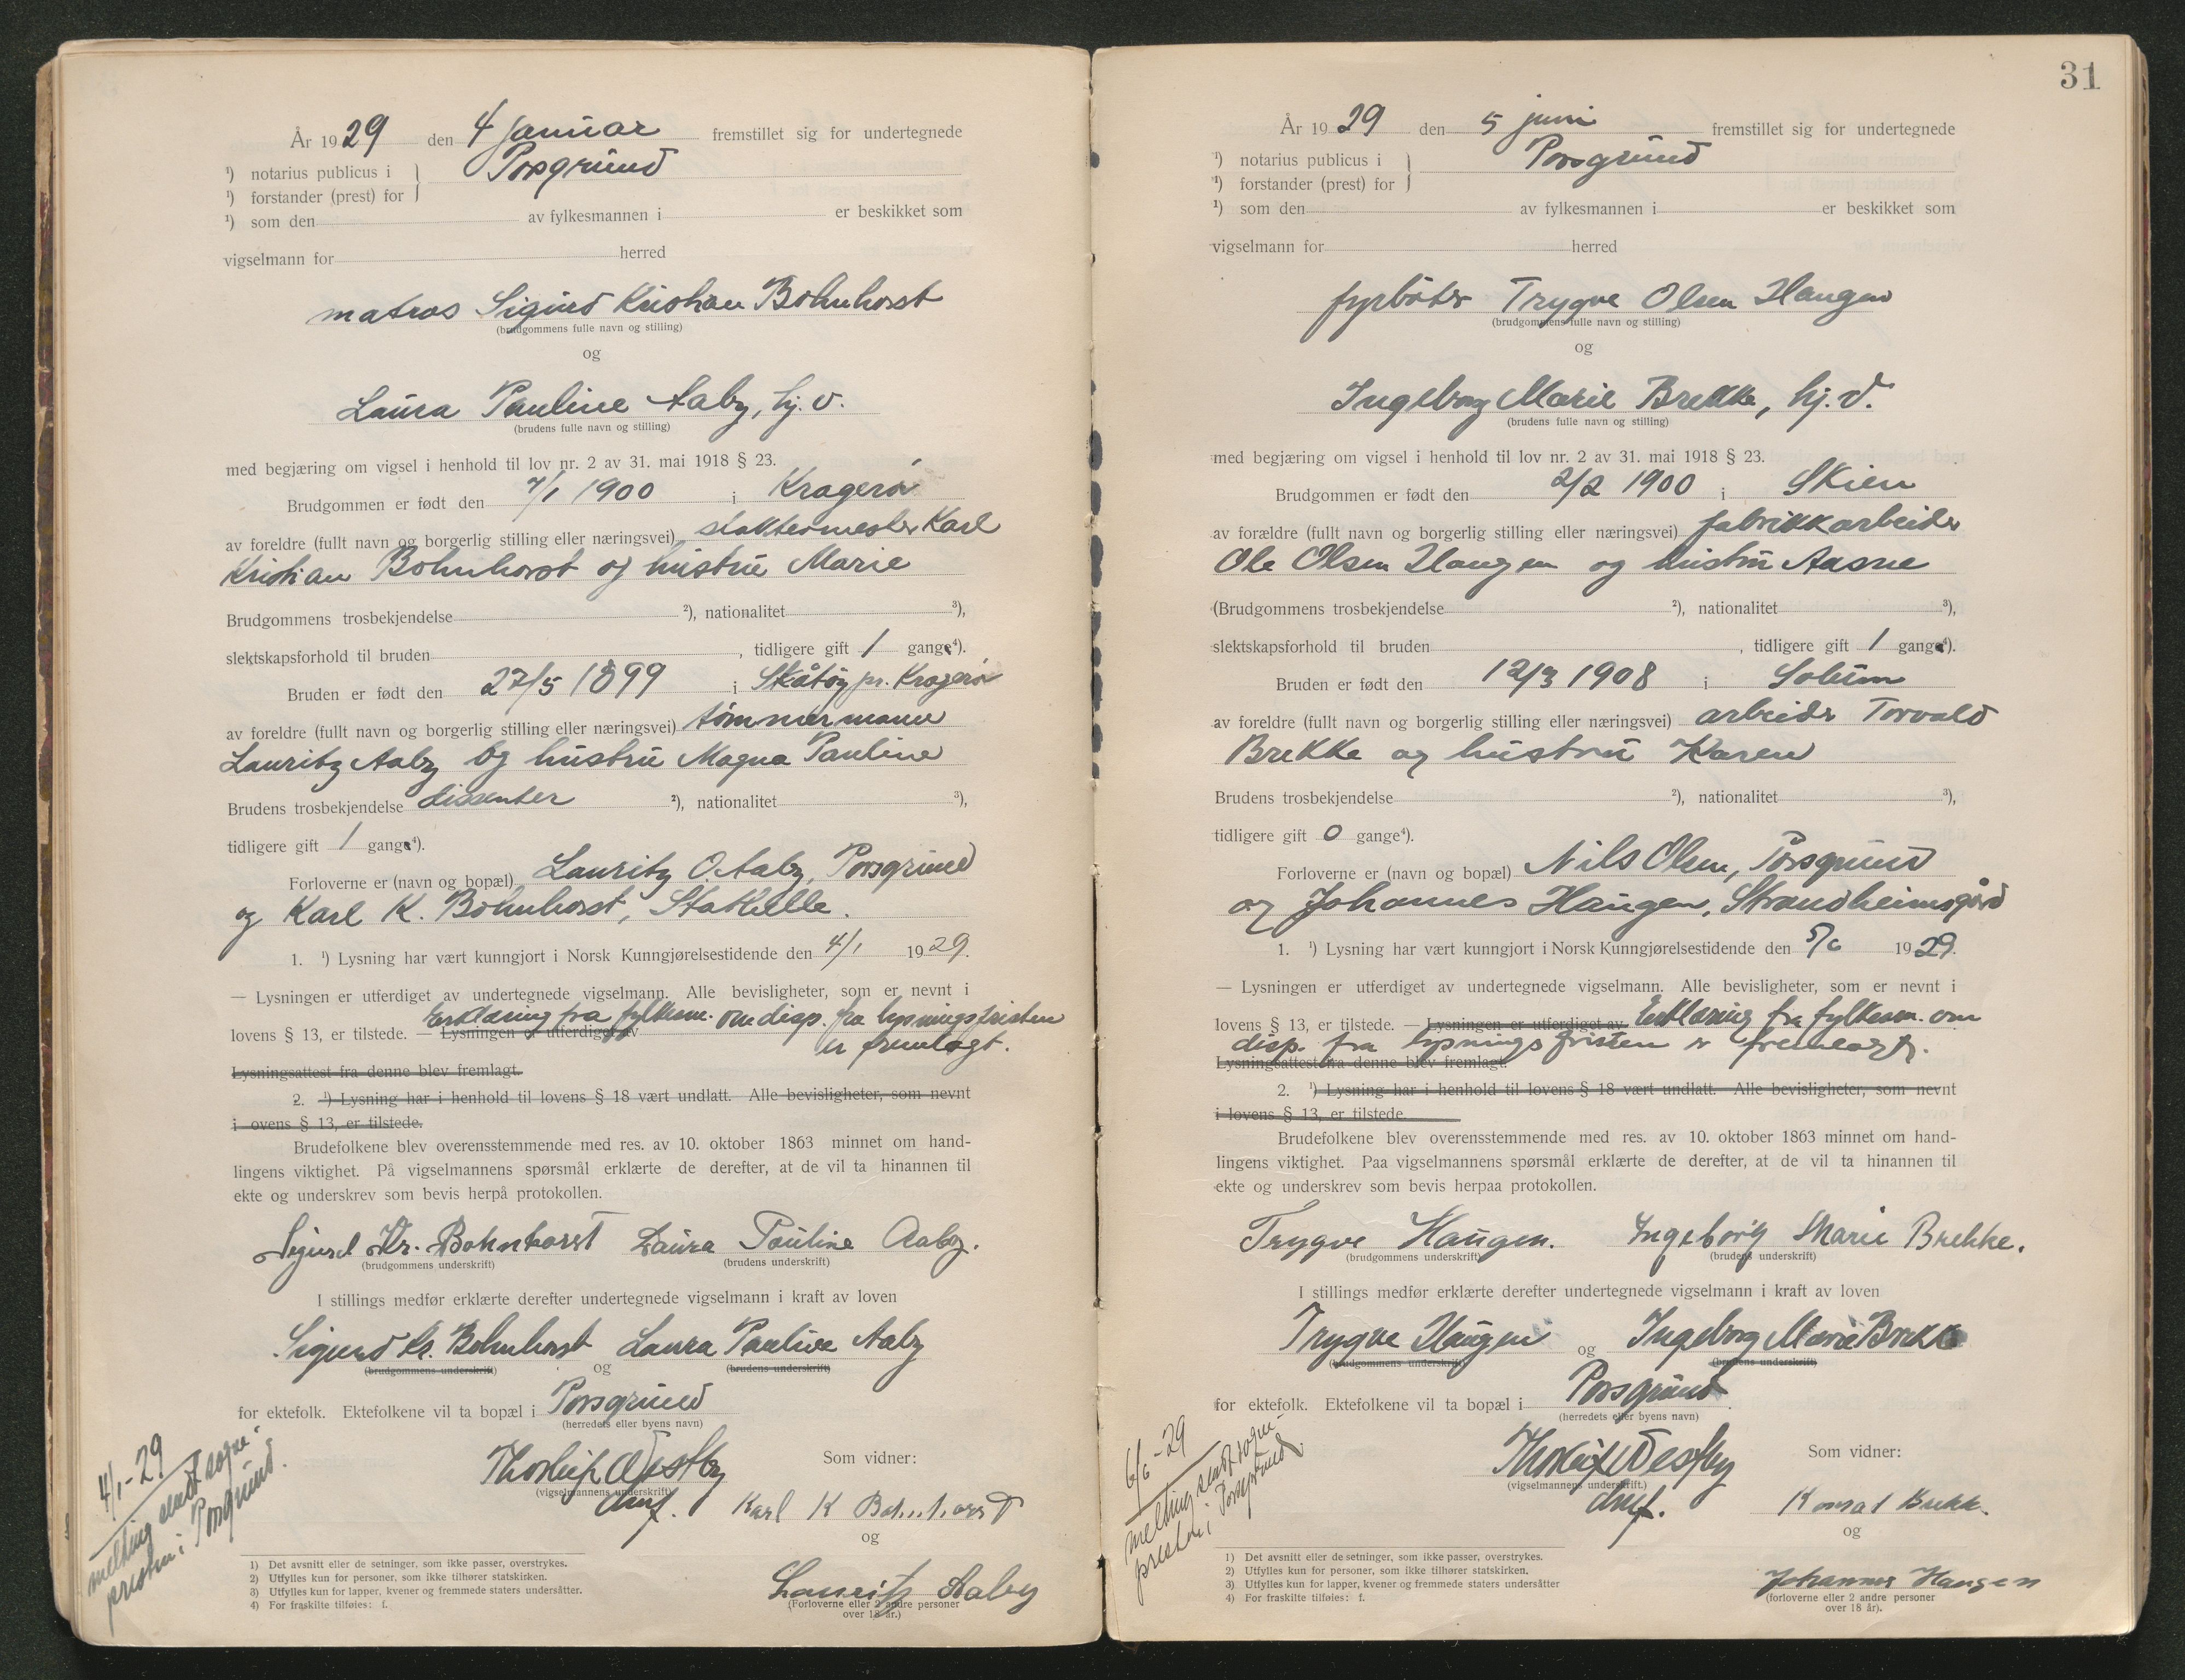 År 1929 den 4 Januar fremstillet sig for undertegnede
¹) notarius publicus i Porsgrund
¹) forstander (prest) for
¹) som den av fylkesmannen i er beskikket som
vigselmann for herred
matros Sigurd Kristian Bohnhorst
(brudgommens fulle navn og stilling)
og
Laura Pauline Aaby, hj. v.
(brudens fulle navn og stilling)
med begjæring om vigsel i henhold til lov nr. 2 av 31. mai 1918 § 23.
Brudgommen er født den 7/1 1900 i Kragerø
av foreldre (fullt navn og borgerlig stilling eller næringsvei) slaktermester Karl
Kristian Bohnhorst og hustru Marie
Brudgommens trosbekjendelse ²), nationalitet ³),
slektskapsforhold til bruden , tidligere gift 1 gang⁴).
Bruden er født den 27/5 1899 i Skåtøy pr. Kragerø
av foreldre (fullt navn og borgerlig stilling eller næringsvei) tømmermann
Lauritz Aaby og hustru Magna Pauline
Brudens trosbekjendelse dissenter ²), nationalitet ³),
tidligere gift 1 gang⁴).
Forloverne er (navn og bopæl) Lauritz O. Aaby, Porsgrund
og Karl K. Bohnhorst, Stathelle.
1. ¹) Lysning har vært kunngjort i Norsk Kunngjørelsestidende den 4/1 1929.
— Lysningen er utferdiget av undertegnede vigselmann. Alle bevisligheter, som er nevnt i
Erklæring fra fylkesm. om disp. fra lysningsfristen
lovens § 13, er tilstede. — Lysningen er utferdiget av er fremlagt.
Lysningsattest fra denne blev fremlagt.
2. ¹) Lysning har i henhold til lovens § 18 vært undlatt. Alle bevisligheter, som nevnt
i ovens § 13, er tilstede.
Brudefolkene blev overensstemmende med res. av 10. oktober 1863 minnet om hand-
lingens viktighet. På vigselmannens spørsmål erklærte de derefter, at de vil ta hinannen til
ekte og underskrev som bevis herpå protokollen.
Sigurd Kr. Bohnhorst Laura Pauline Aaby.
(brudgommens underskrift) (brudens underskrift)
I stillings medfør erklærte derefter undertegnede vigselmann i kraft av loven
Sigurd Kr. Bohnhorst Laura Pauline Aaby
(brudgommens underskrift) og (brudens underskrift)
for ektefolk. Ektefolkene vil ta bopæl i Porsgrund
(herredets eller byens navn)
Thorleif Westby Som vidner:
(vigselmannens underskrift)
Karl K Bohnhorst
og
Lauritz Aaby
(Forloverne eller 2 andre personer
over 18 år.)
4/1-29
melding sendt sogne-
presten i Porsgrund.
1) Det avsnitt eller de setninger, som ikke passer, overstrykes.
2) Utfylles kun for personer, som ikke tilhører statskirken.
3) Utfylles kun for lapper, kvener og fremmede staters undersåtter.
4) For fraskilte tilføies: f.
31
År 1929 den 5 juni fremstillet sig for undertegnede
¹) notarius publicus i Porsgrund
¹) forstander (prest) for
¹) som den av fylkesmannen i er beskikket som
vigselmann for herred
fyrbøter Trygve Olsen Haugen
(brudgommens fulle navn og stilling)
og
Ingeborg Marie Brekke, hj. v.
(brudens fulle navn og stilling)
med begjæring om vigsel i henhold til lov nr. 2 av 31. mai 1918 § 23.
Brudgommen er født den 2/2 1900 i Skien
av forældre (fullt navn og borgerlig stilling eller næringsvei) fabrikkarbeider
Ole Olsen Haugen og hustru Aasne
(Brudgommens trosbekjendelse ²), nationalitet ³),
slektskapsforhold til bruden , tidligere gift 1 gang⁴).
Bruden er født den 12/3 1908 i Solum
av foreldre (fullt navn og borgerlig stilling eller næringsvei) arbeider Torvald
Brekke og hustru Karen
Brudens trosbekjendelse ²), nationalitet ³),
tidligere gift 0 gange⁴).
Forloverne er (navn og bopæl) Nils Olsen, Porsgrund
og Johannes Haugen, Strandheimsgård
1. ¹) Lysning har vært kunngjort i Norsk Kunngjørelsestidende den 5/6 1929.
— Lysningen er utferdiget av undertegnede vigselmann. Alle bevisligheter, som er nevnt i
lovens § 13, er tilstede. — Lysningen er utferdiget av Erklæring fra fylkesm. om
disp. fra lysningsfristen er fremlagt.
Lysningsattest fra denne blev fremlagt.
2. ¹) Lysning har i henhold til lovens § 18 vært undlatt. Alle bevisligheter, som nevnt
i lovens § 13, er tilstede.
Brudefolkene blev overensstemmende med res. av 10. oktober 1863 minnet om hand-
lingens viktighet. Paa vigselmannens spørsmål erklærte de derefter, at de vil ta hinannen til
ekte og underskrev som bevis herpaa protokollen.
Trygve Haugen. Ingeborg Marie Brekke.
(brudgommens underskrift) (brudens underskrift)
I stillings medfør erklærte derefter undertegnede vigselmann i kraft av loven
Trygve Haugen og Ingeborg Marie Brekke
(brudgommens underskrift) (brudens underskrift)
for ektefolk. Ektefolkene vil ta bopæl i Porsgrund
(herredets eller byens navn)
Thorleif Westby Som vidner:
(vigselmannens underskrift.)
Konrad
og
Johannes Haugen
(forloverne eller 2 andre personer
over 18 år).
6/6-29
melding sendt sogne-
presten i Porsgrund
1) Det avsnitt eller de setninger, som ikke passer, overstrykes.
2) Utfylles kun for personer, som ikke tilhører statskirken.
3) Utfylles kun for lapper, kvener og fremmede staters undersåtter
4) For fraskilte tilføies: f.